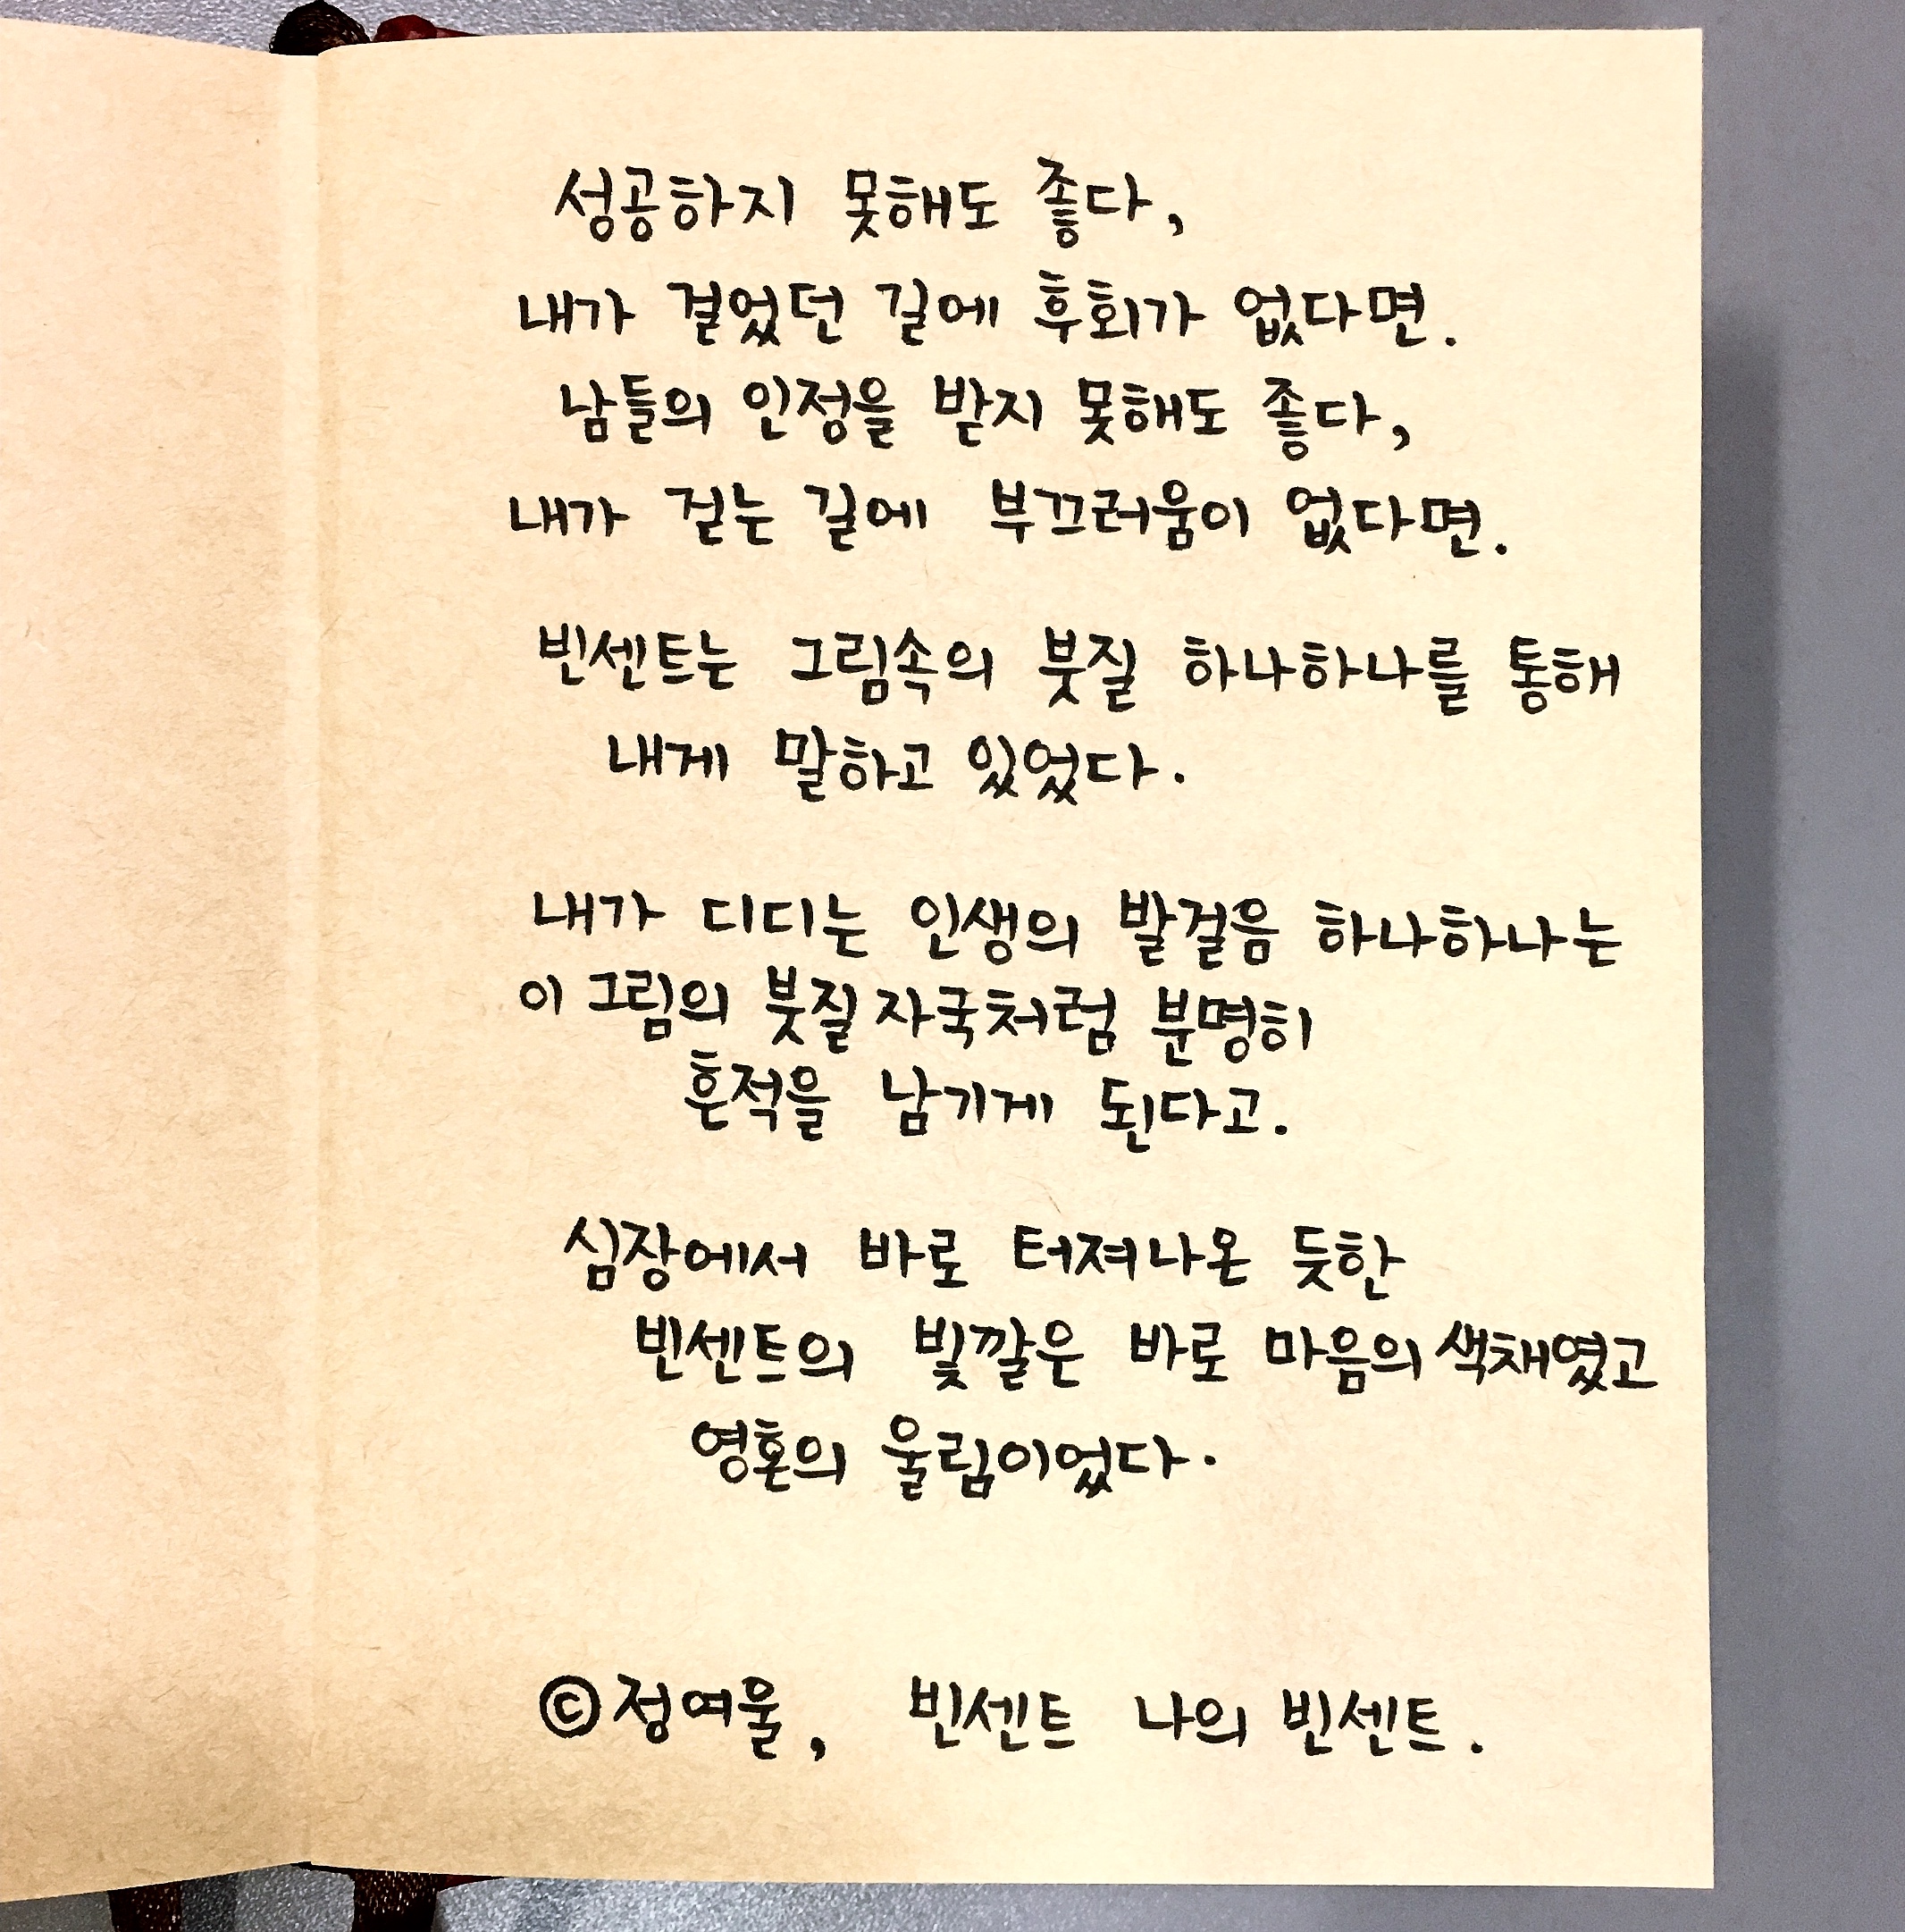 성공하지 못해도 좋다,
내가 걸었던 길에 후회가 없다면.
남들의 인정을 받지 못해도 좋다,
내가 걷는 길에 부끄러움이 없다면.
빈센트는 그림속의 붓질 하나하나를 통해
내게 말하고 있었다.
내가 디디는 인생의 발걸음 하나하나는
이 그림의 붓질 자국처럼 분명히
흔적을 남기게 된다고.
심장에서 바로 터져나온 듯한
빈센트의 빛깔은 바로 마음의 색채였고
영혼의 울림이었다.
©정여울, 빈센트 나의 빈센트.